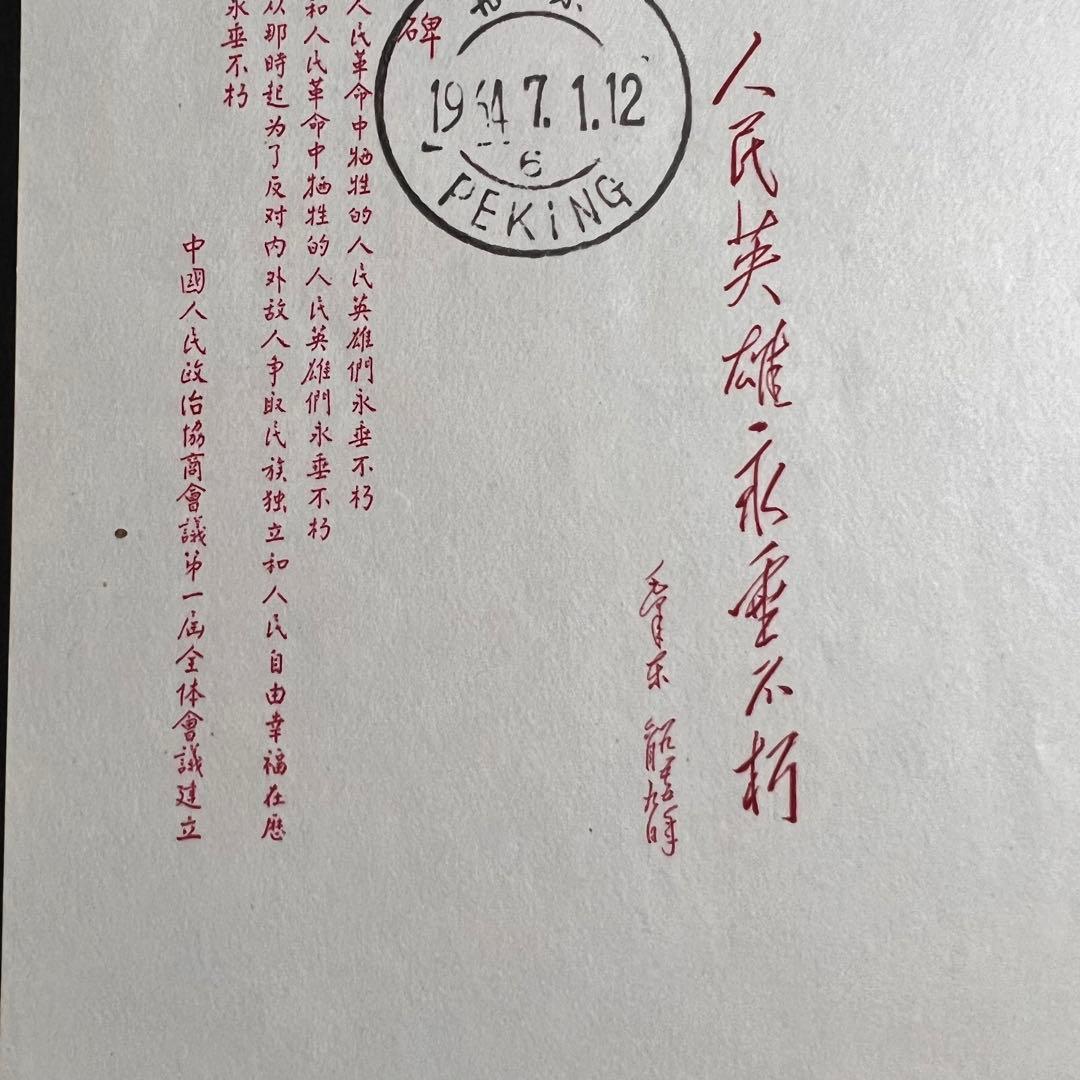 人民英雄永垂不朽
毛泽东
碑
人民革命中牺牲的人民英雄們永垂不朽
和人民革命中牺牲的人民英雄們永垂不朽
从那時起为了反对内外敌人争取民族独立和人民自由幸福在歷
永垂不朽
中國人民政治協商會議第一届全体會議建立
1964.7.1.12
6
PEKING